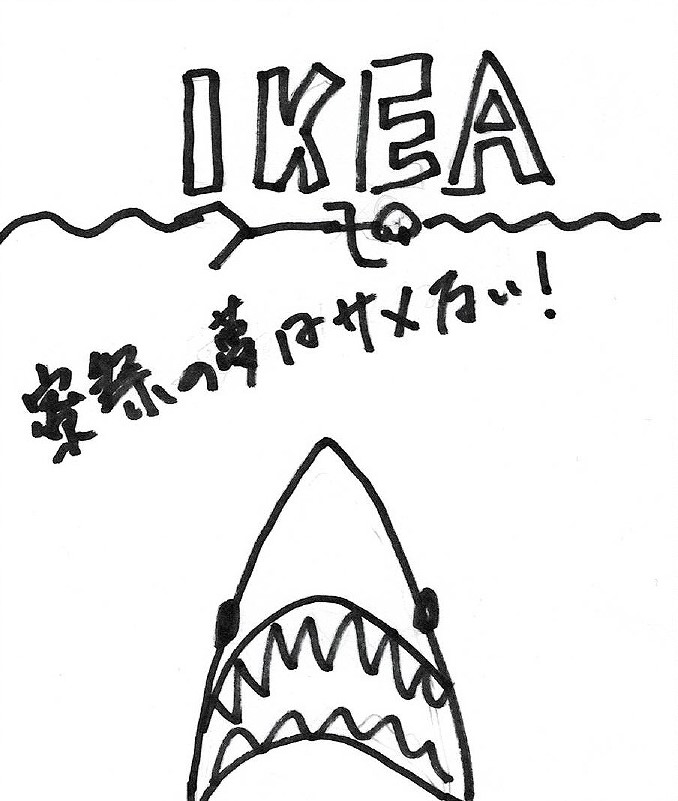 IKEA
寮祭の夢はサメない!